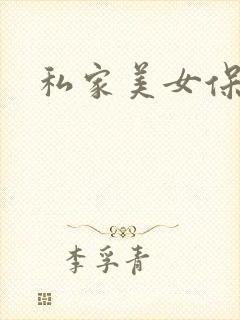 私家美女保
李孚青